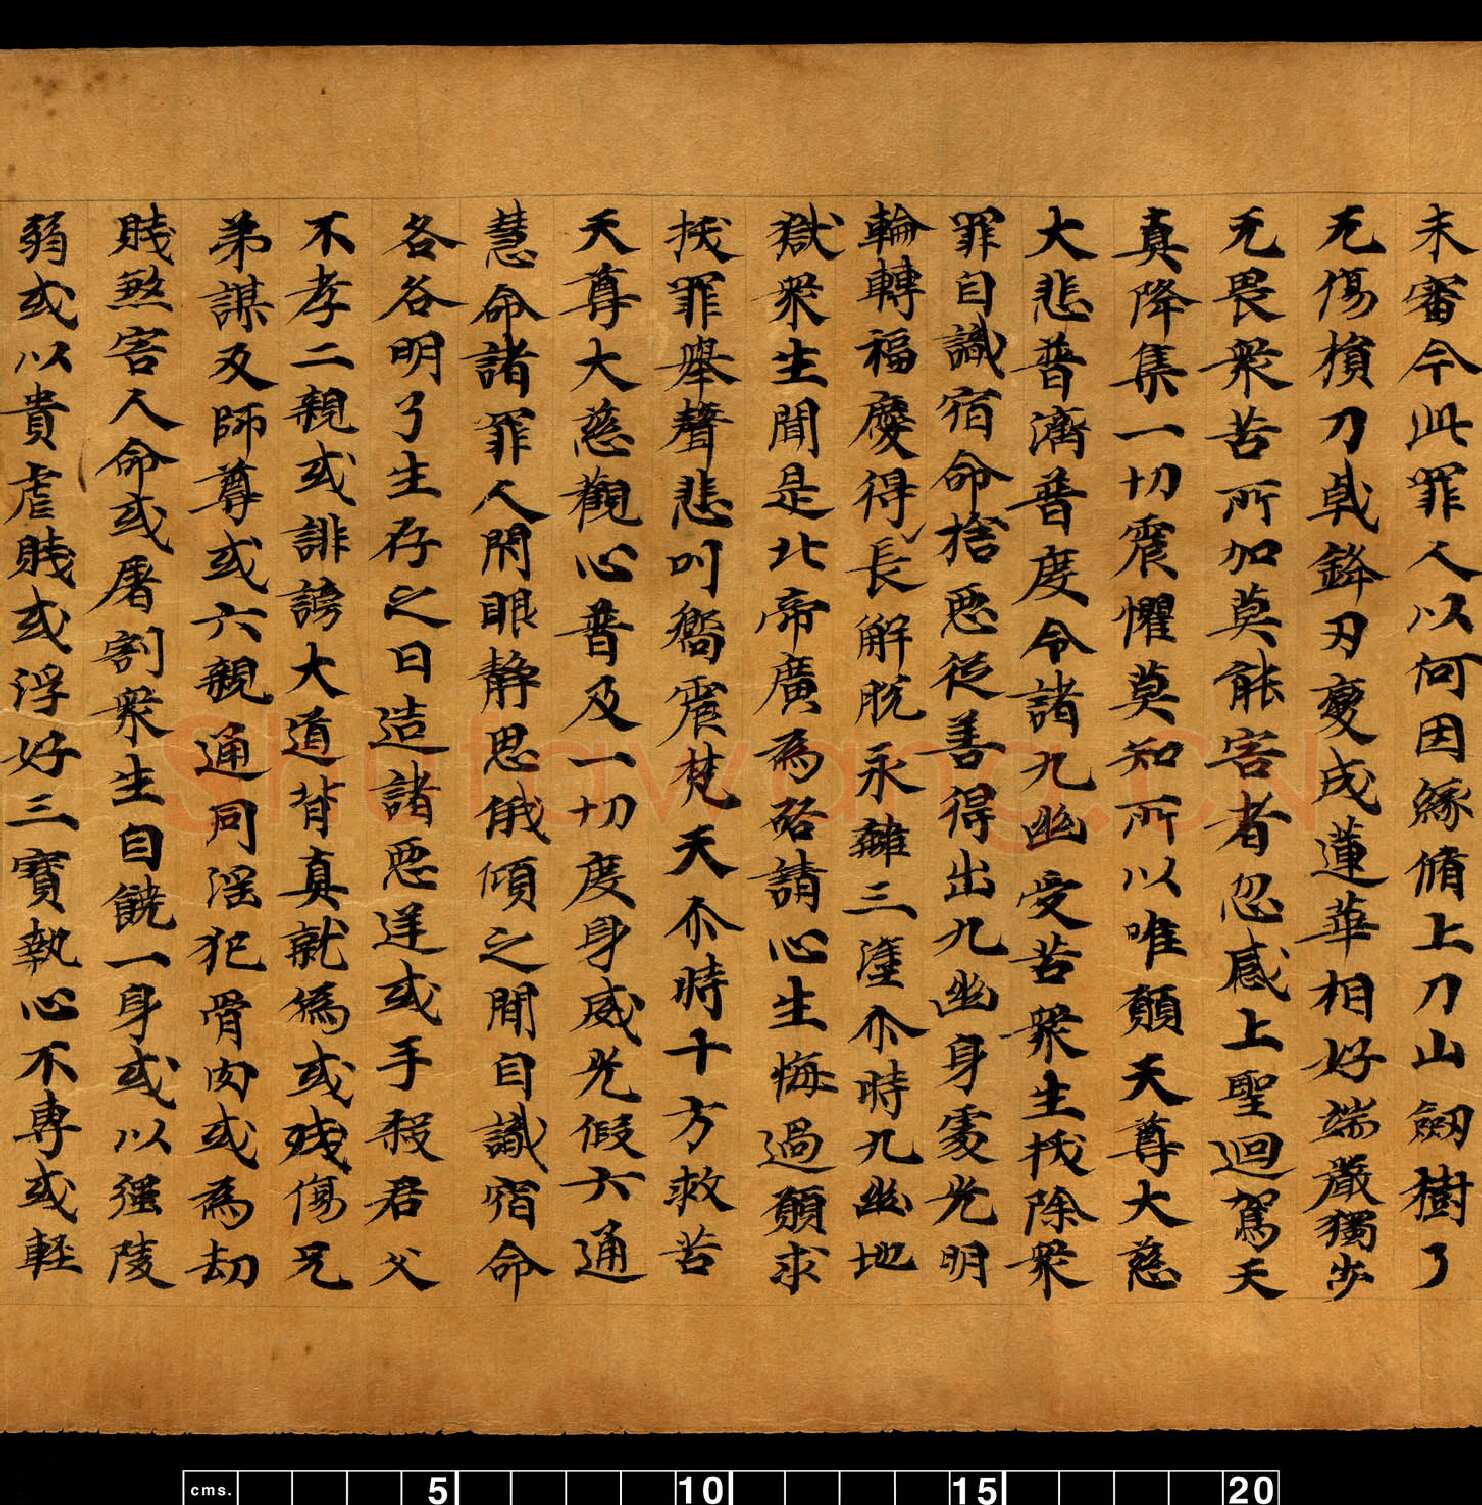 未審今此罪人以何因緣脩上刀山劒樹了
无傷損刀戟鋒刃變成蓮華相好端嚴獨步
无畏衆苦所加莫能害者忽感上聖迴駕天
真降集一切震懼莫知所以唯願天尊大慈
大悲普濟普度令諸九幽受苦衆生拔除衆
罪自識宿命捨惡從善得出九幽身處光明
輪轉福慶得長解脫永離三塗尒時九幽地
獄衆生聞是北帝廣為啓請心生悔過願求
拔罪舉聲悲叫嚮震梵天尒時十方救苦
天尊大慈觀心普及一切度身威光假六通
慧命諸罪人閇眼靜思俄傾之間自識宿命
各各明了生存之日造諸惡逆或手殺君父
不孝二親或誹謗大道背真就偽或殘傷兄
弟謀及師尊或六親通同淫犯骨肉或為劫
賊煞害人命或屠割衆生自饒一身或以强陵
弱或以貴虐賤或浮好三寶執心不專或輕
5 10 15 20
cms.
Shufawang.CN